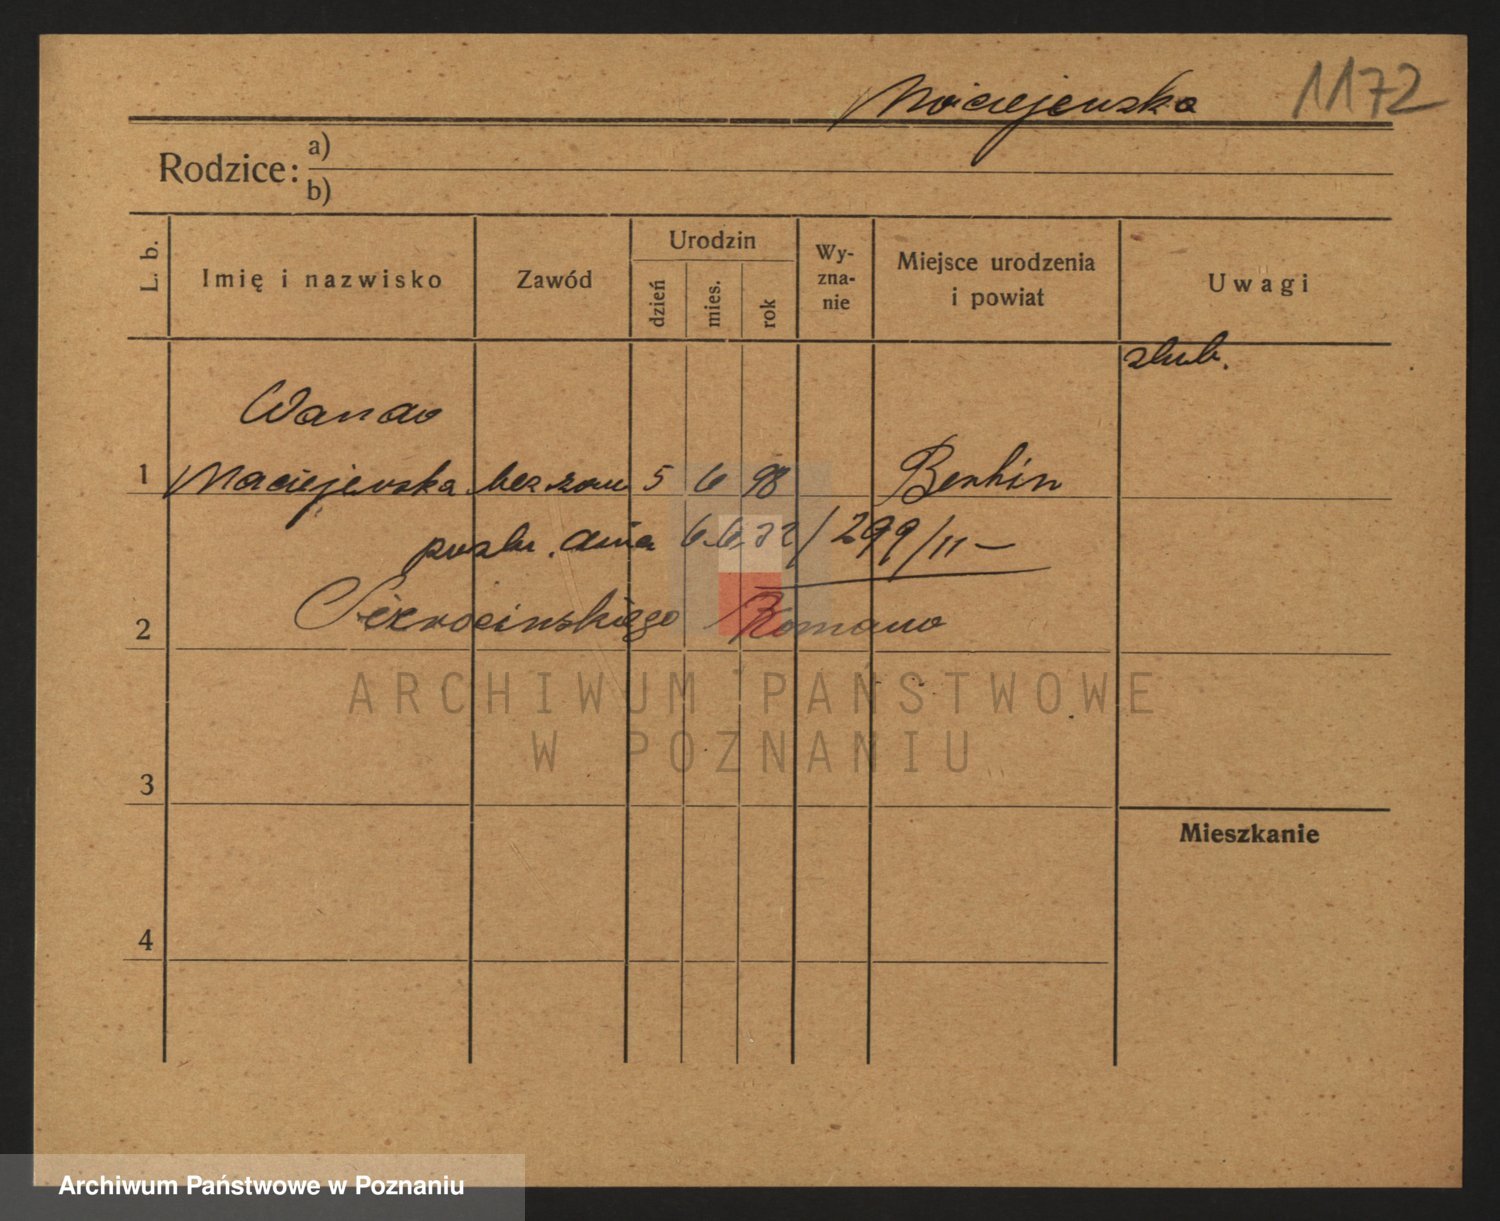 Maciejewska 1172
Rodzice: a)
b)
L. b. Imię i nazwisko Zawód Urodzin dzień mies. rok Wy-zna-nie Miejsce urodzenia i powiat Uwagi
ślub.
Wanda
1 Maciejewska bez zaw 5 6 98 Berlin
poślu. dnia 6.6.22/299/11-
2 Sierocinskiego Romana
ARCHIWUM PAŃSTWOWE
W POZNANIU
3
Mieszkanie
4
Archiwum Państwowe w Poznaniu